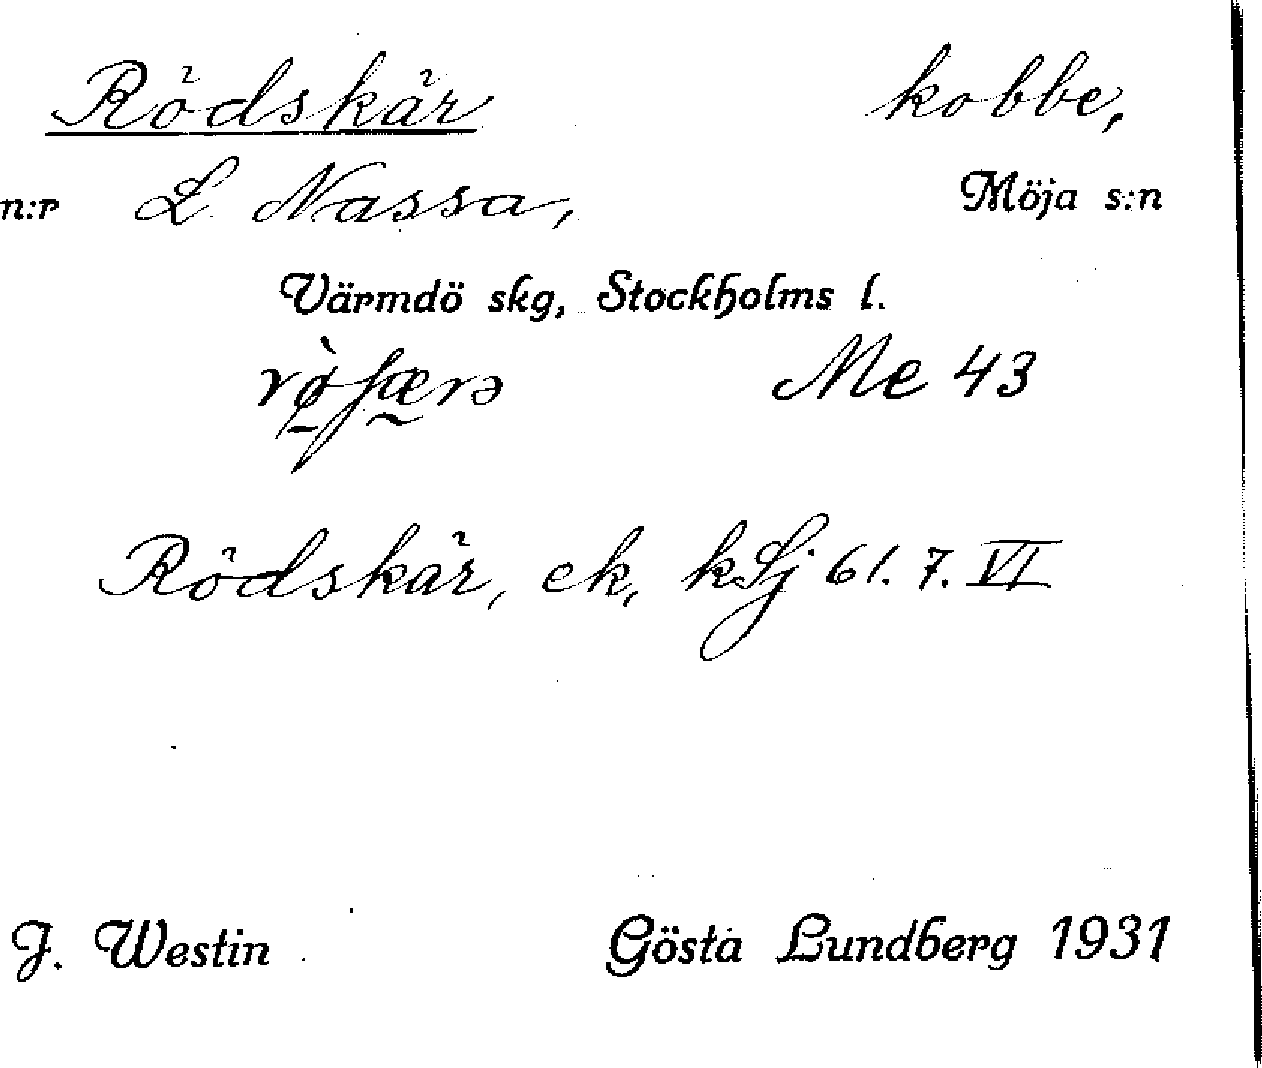 Rödskär kobbe,
n:r L Nassa, Möja s:n
Värmdö skg, Stockholms l.
Me 43
Rödskär, ek, kSj 61. 7. VI
J. Westin Gösta Lundberg 1931